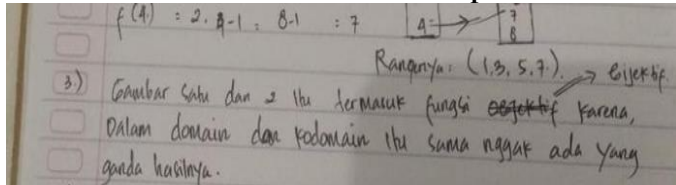 f(4) = 2. 4-1 = 8-1 = 7
4
7
8
Rangenya: (1,3,5,7.)
bijektif
3.) Gambar satu dan 2 itu termasuk fungsi karena,
Dalam domain dan kodomain itu sama nggak ada yang
ganda hasilnya.